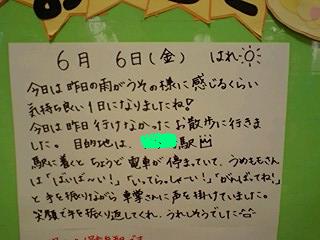 6月 6日(金) はれ
今日は昨日の雨がうその様に感じるくらい
気持ち良い1日になりましたね!
今日は昨日行けなかったお散歩に行きま
した。目的地は、駅
駅に着くとちょうど電車が停まっていて、うめももさん
は「ばいばーい!」「いってらっしゃーい!」「がんばってね!」
と手を振りながら車掌さんに声を掛けていました。
笑顔で手を振り返してくれ、うれしそうでした